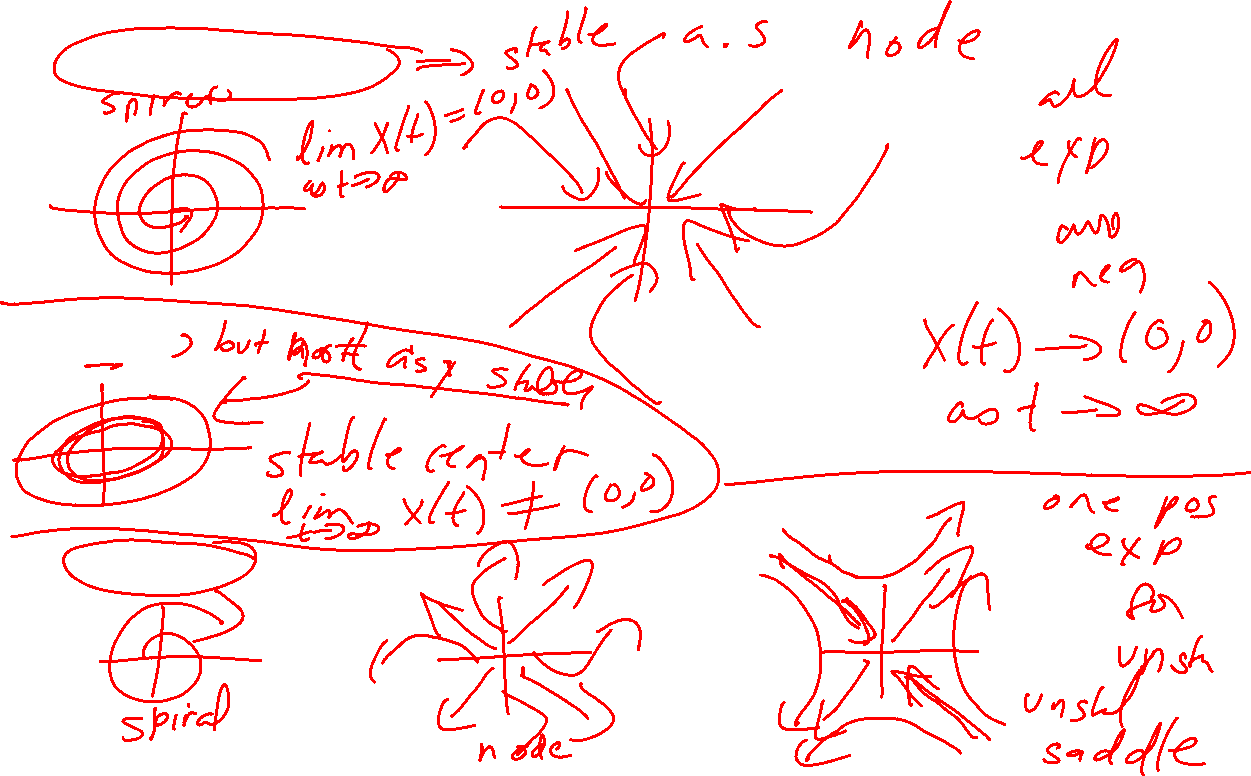 ⇒ stable a.s node
spiral
lim X(t) = (0,0)
as t→∞
all
exp
are
neg
X(t) → (0,0)
as t → ∞
, but not asy stable
stable center
lim X(t) ≠ (0,0)
t→∞
spiral
node
one pos
exp
for
unsta
unstabl
saddle